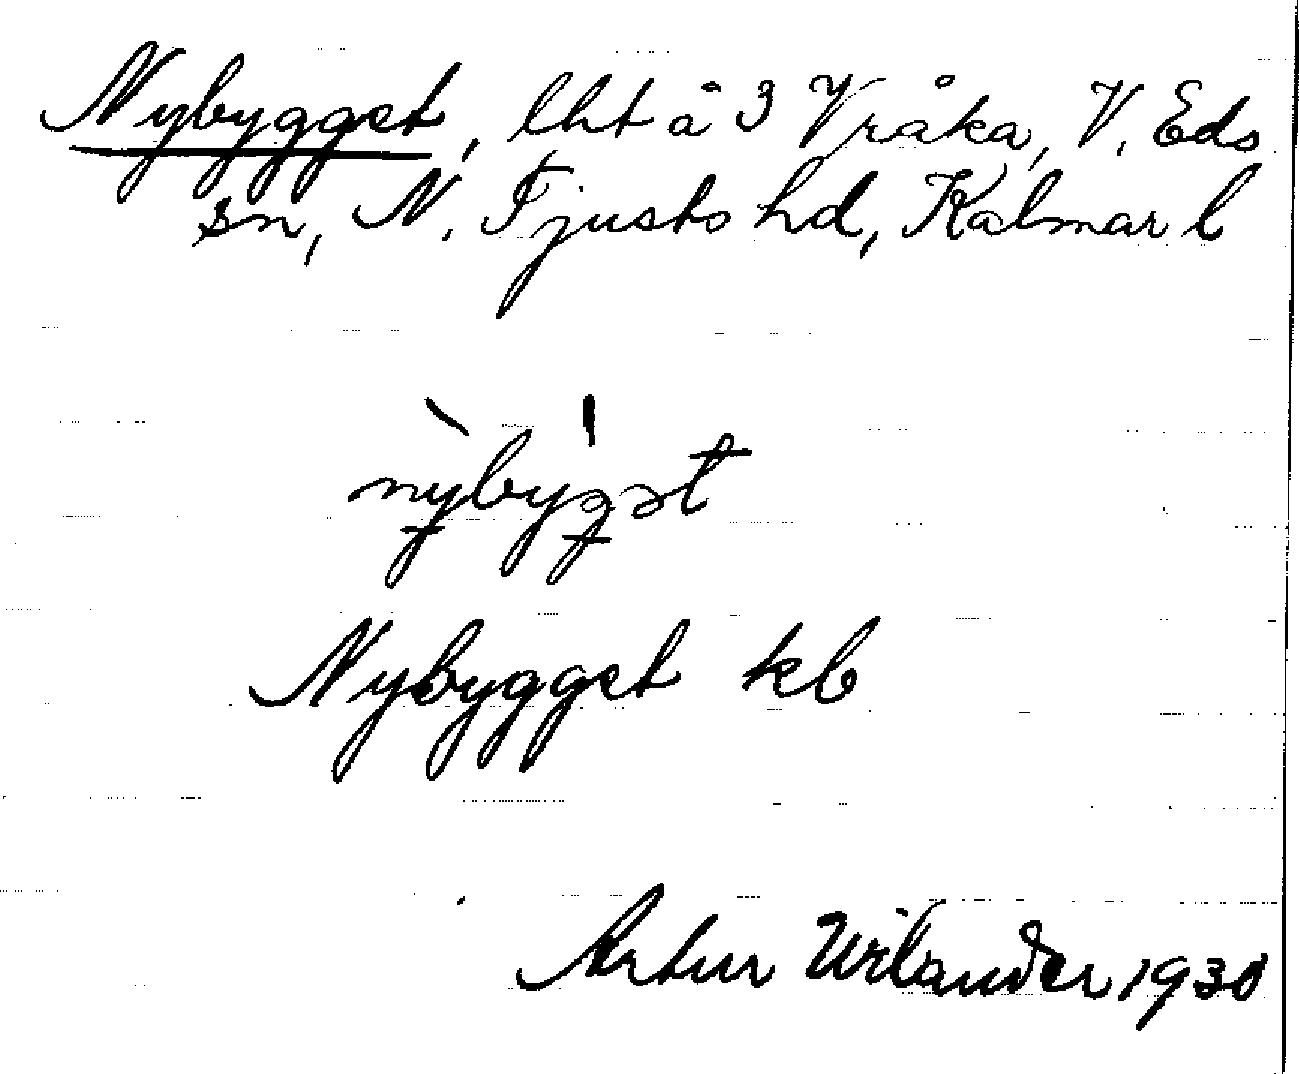 Nybygget, lht å 3 Vråka, V. Eds
sn, N. Tjusts hd, Kalmar l
nybygət
Nybygget kb
Artur Wilander 1930